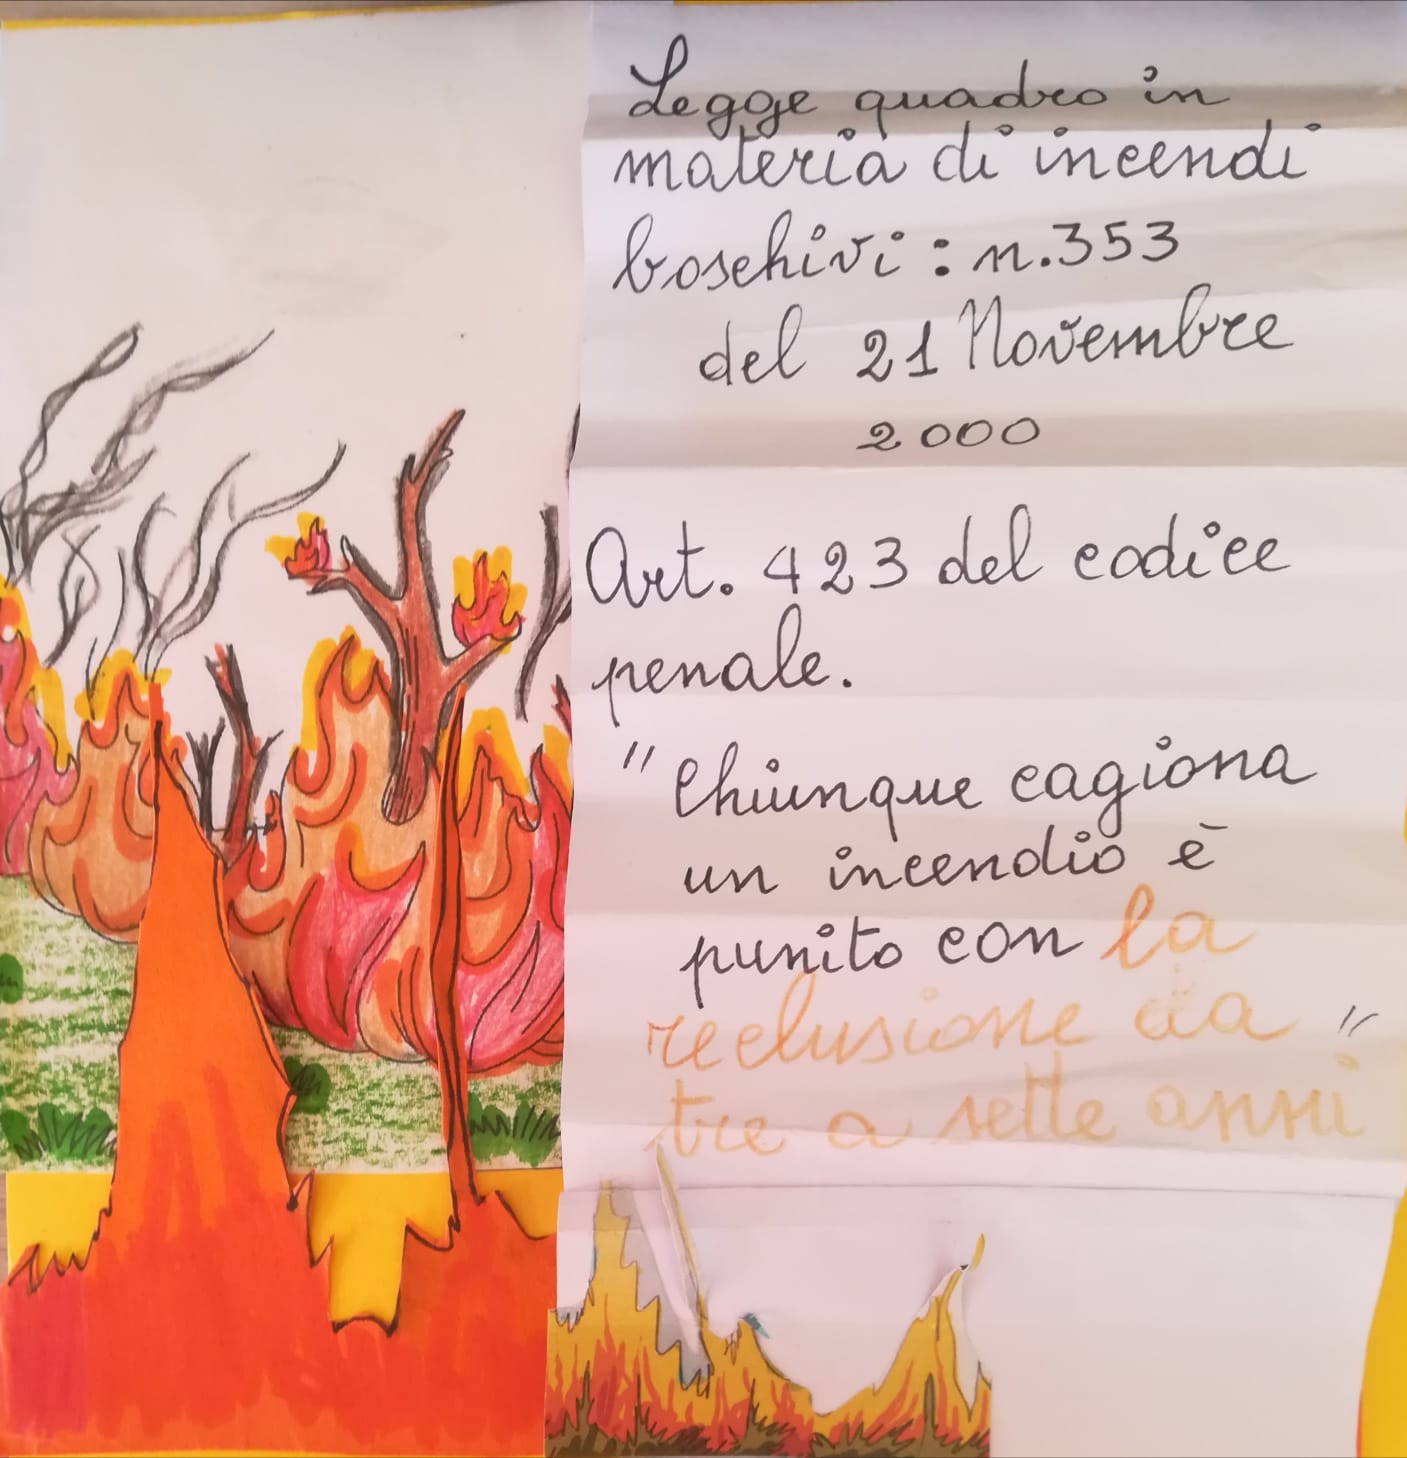 Legge quadro in
materia di incendi
boschivi: n.353
del 21 Novembre
2000
Art. 423 del codice
penale.
"Chiunque cagiona
un incendio è
punito con la
reclusione da
tre a sette anni"